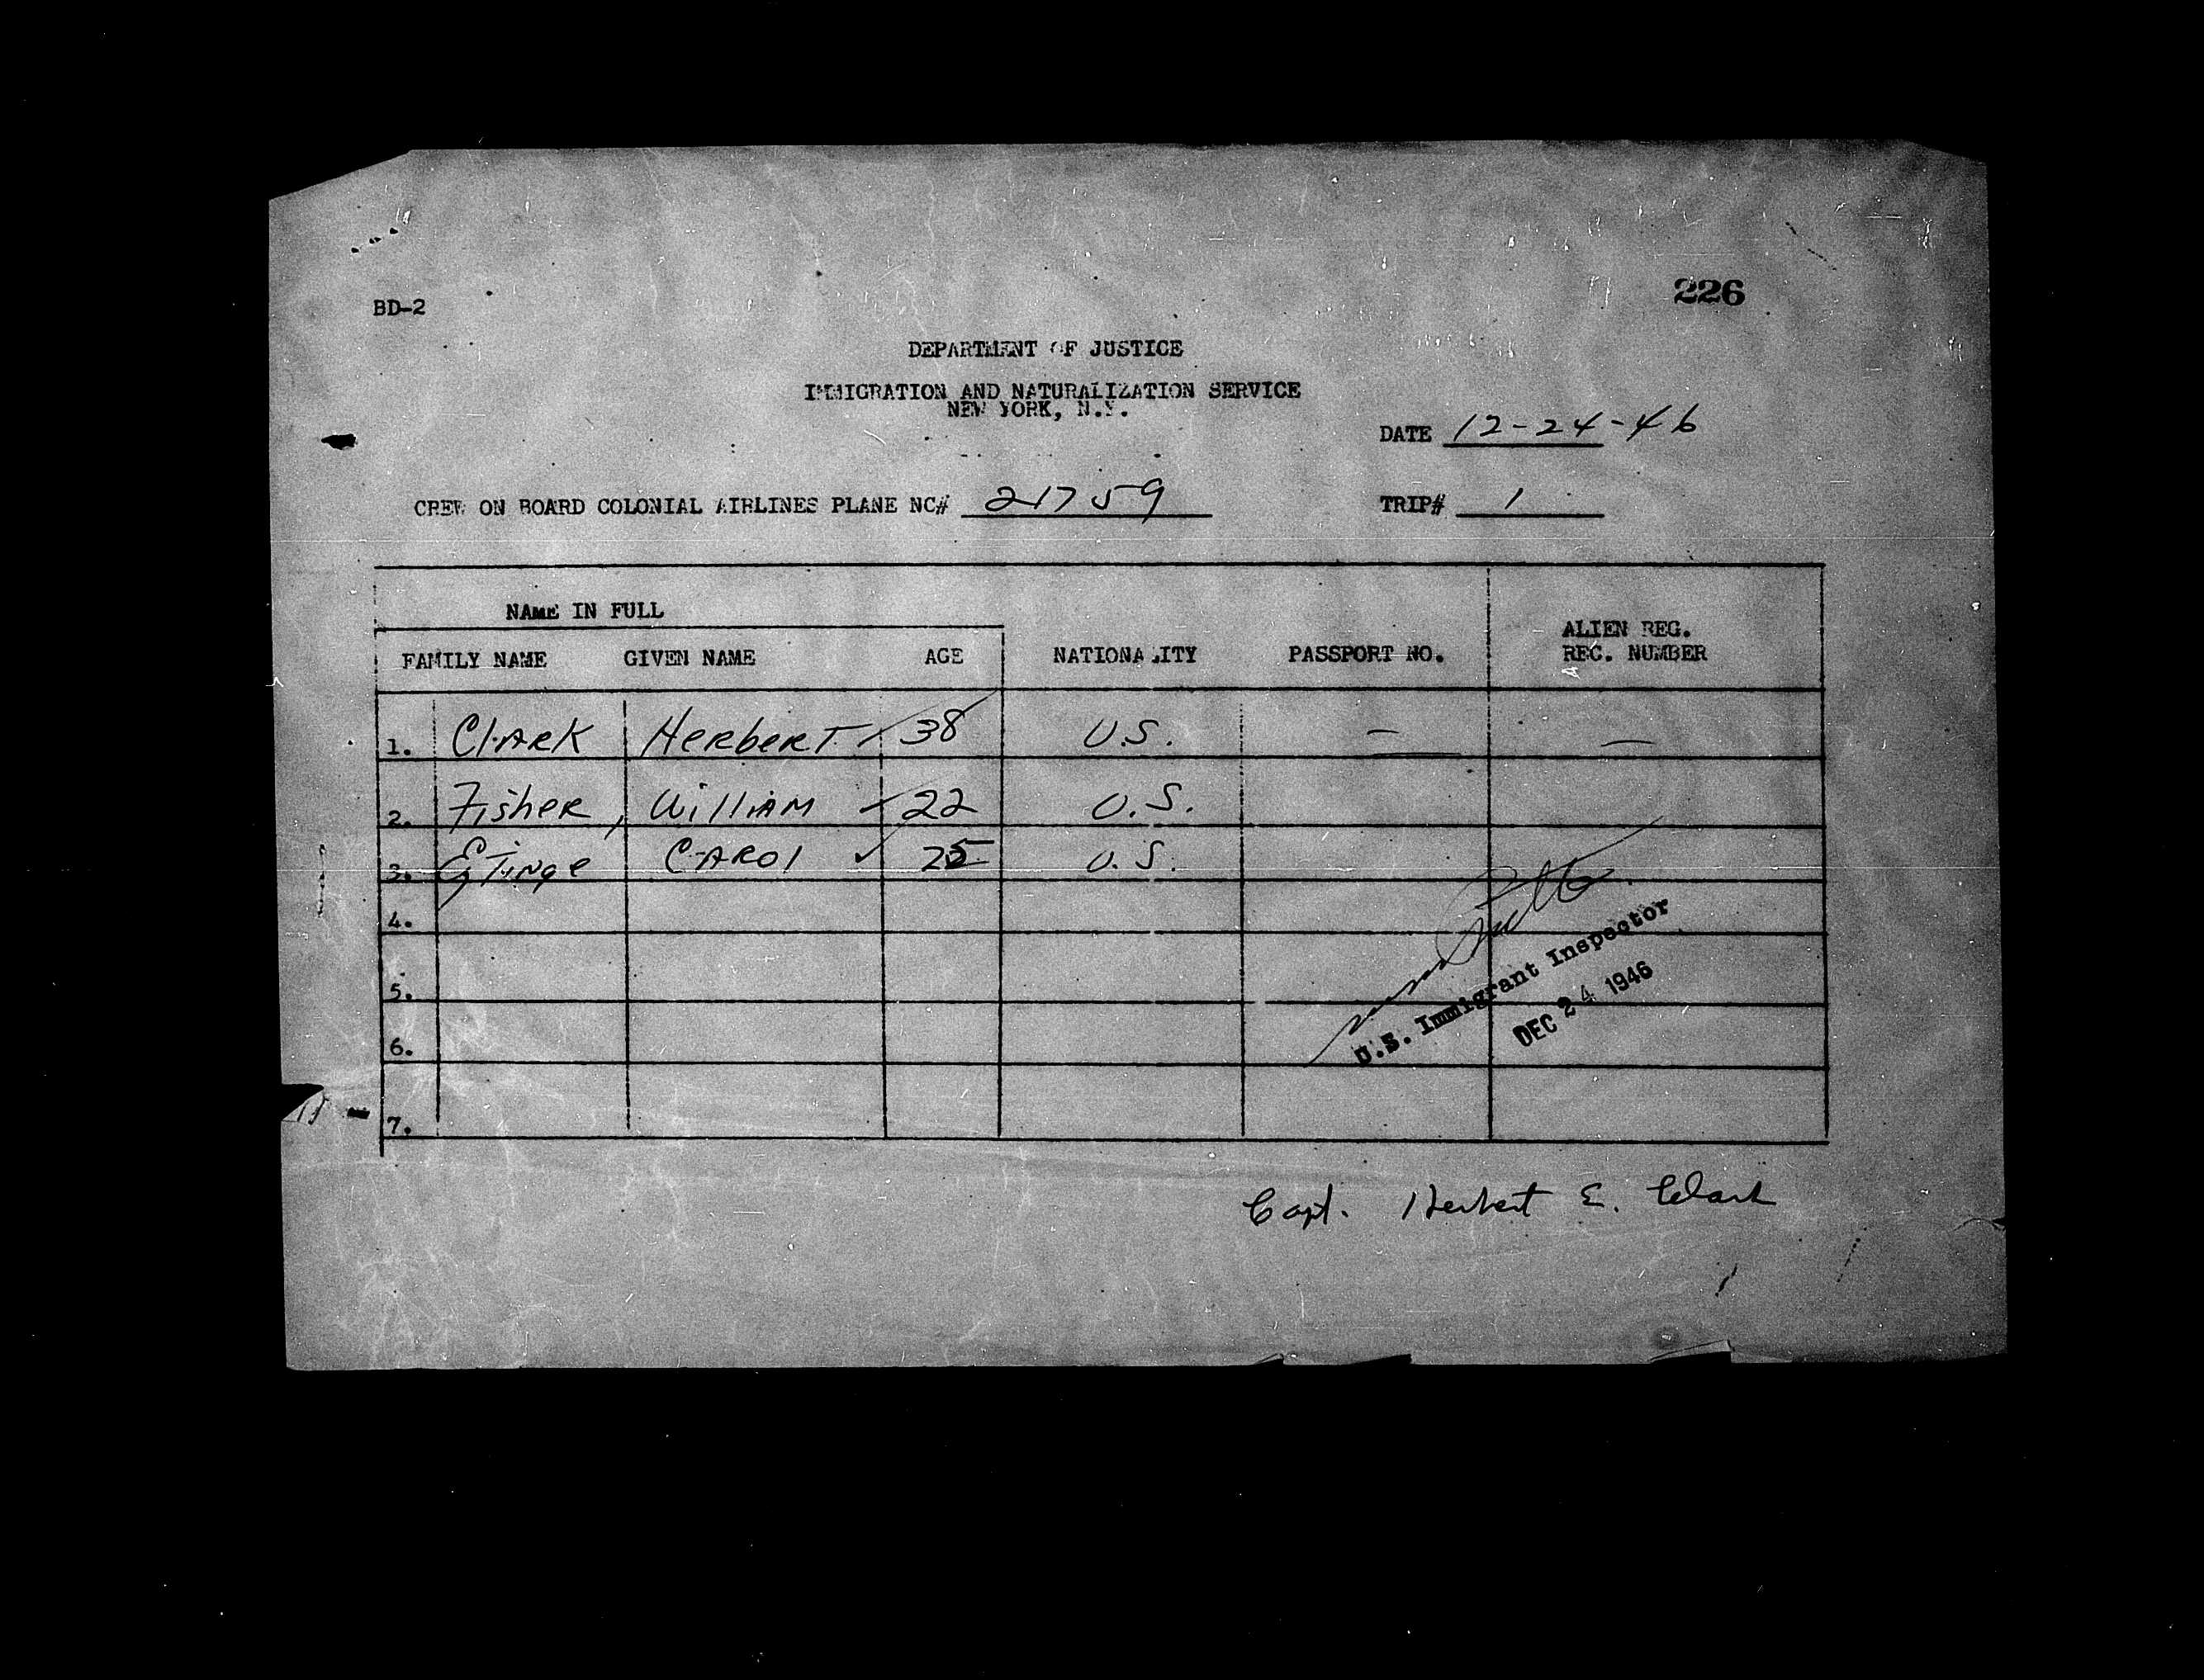 BD-2
226
DEPARTMENT OF JUSTICE
IMMIGRATION AND NATURALIZATION SERVICE
NEW YORK, N.Y.
DATE 12-24-46
CREW ON BOARD COLONIAL AIRLINES PLANE NC# 21759 TRIP# 1
NAME IN FULL
FAMILY NAME GIVEN NAME AGE NATIONALITY PASSPORT NO. ALIEN REG. REC. NUMBER
1. Clark Herbert 38 U.S. — —
2. Fisher, William 22 U.S.
3. Etinge Carol 25 U.S.
4.
5.
6.
7.
U.S. Immigrant Inspector
DEC 24 1946
Capt. Herbert E. Clark